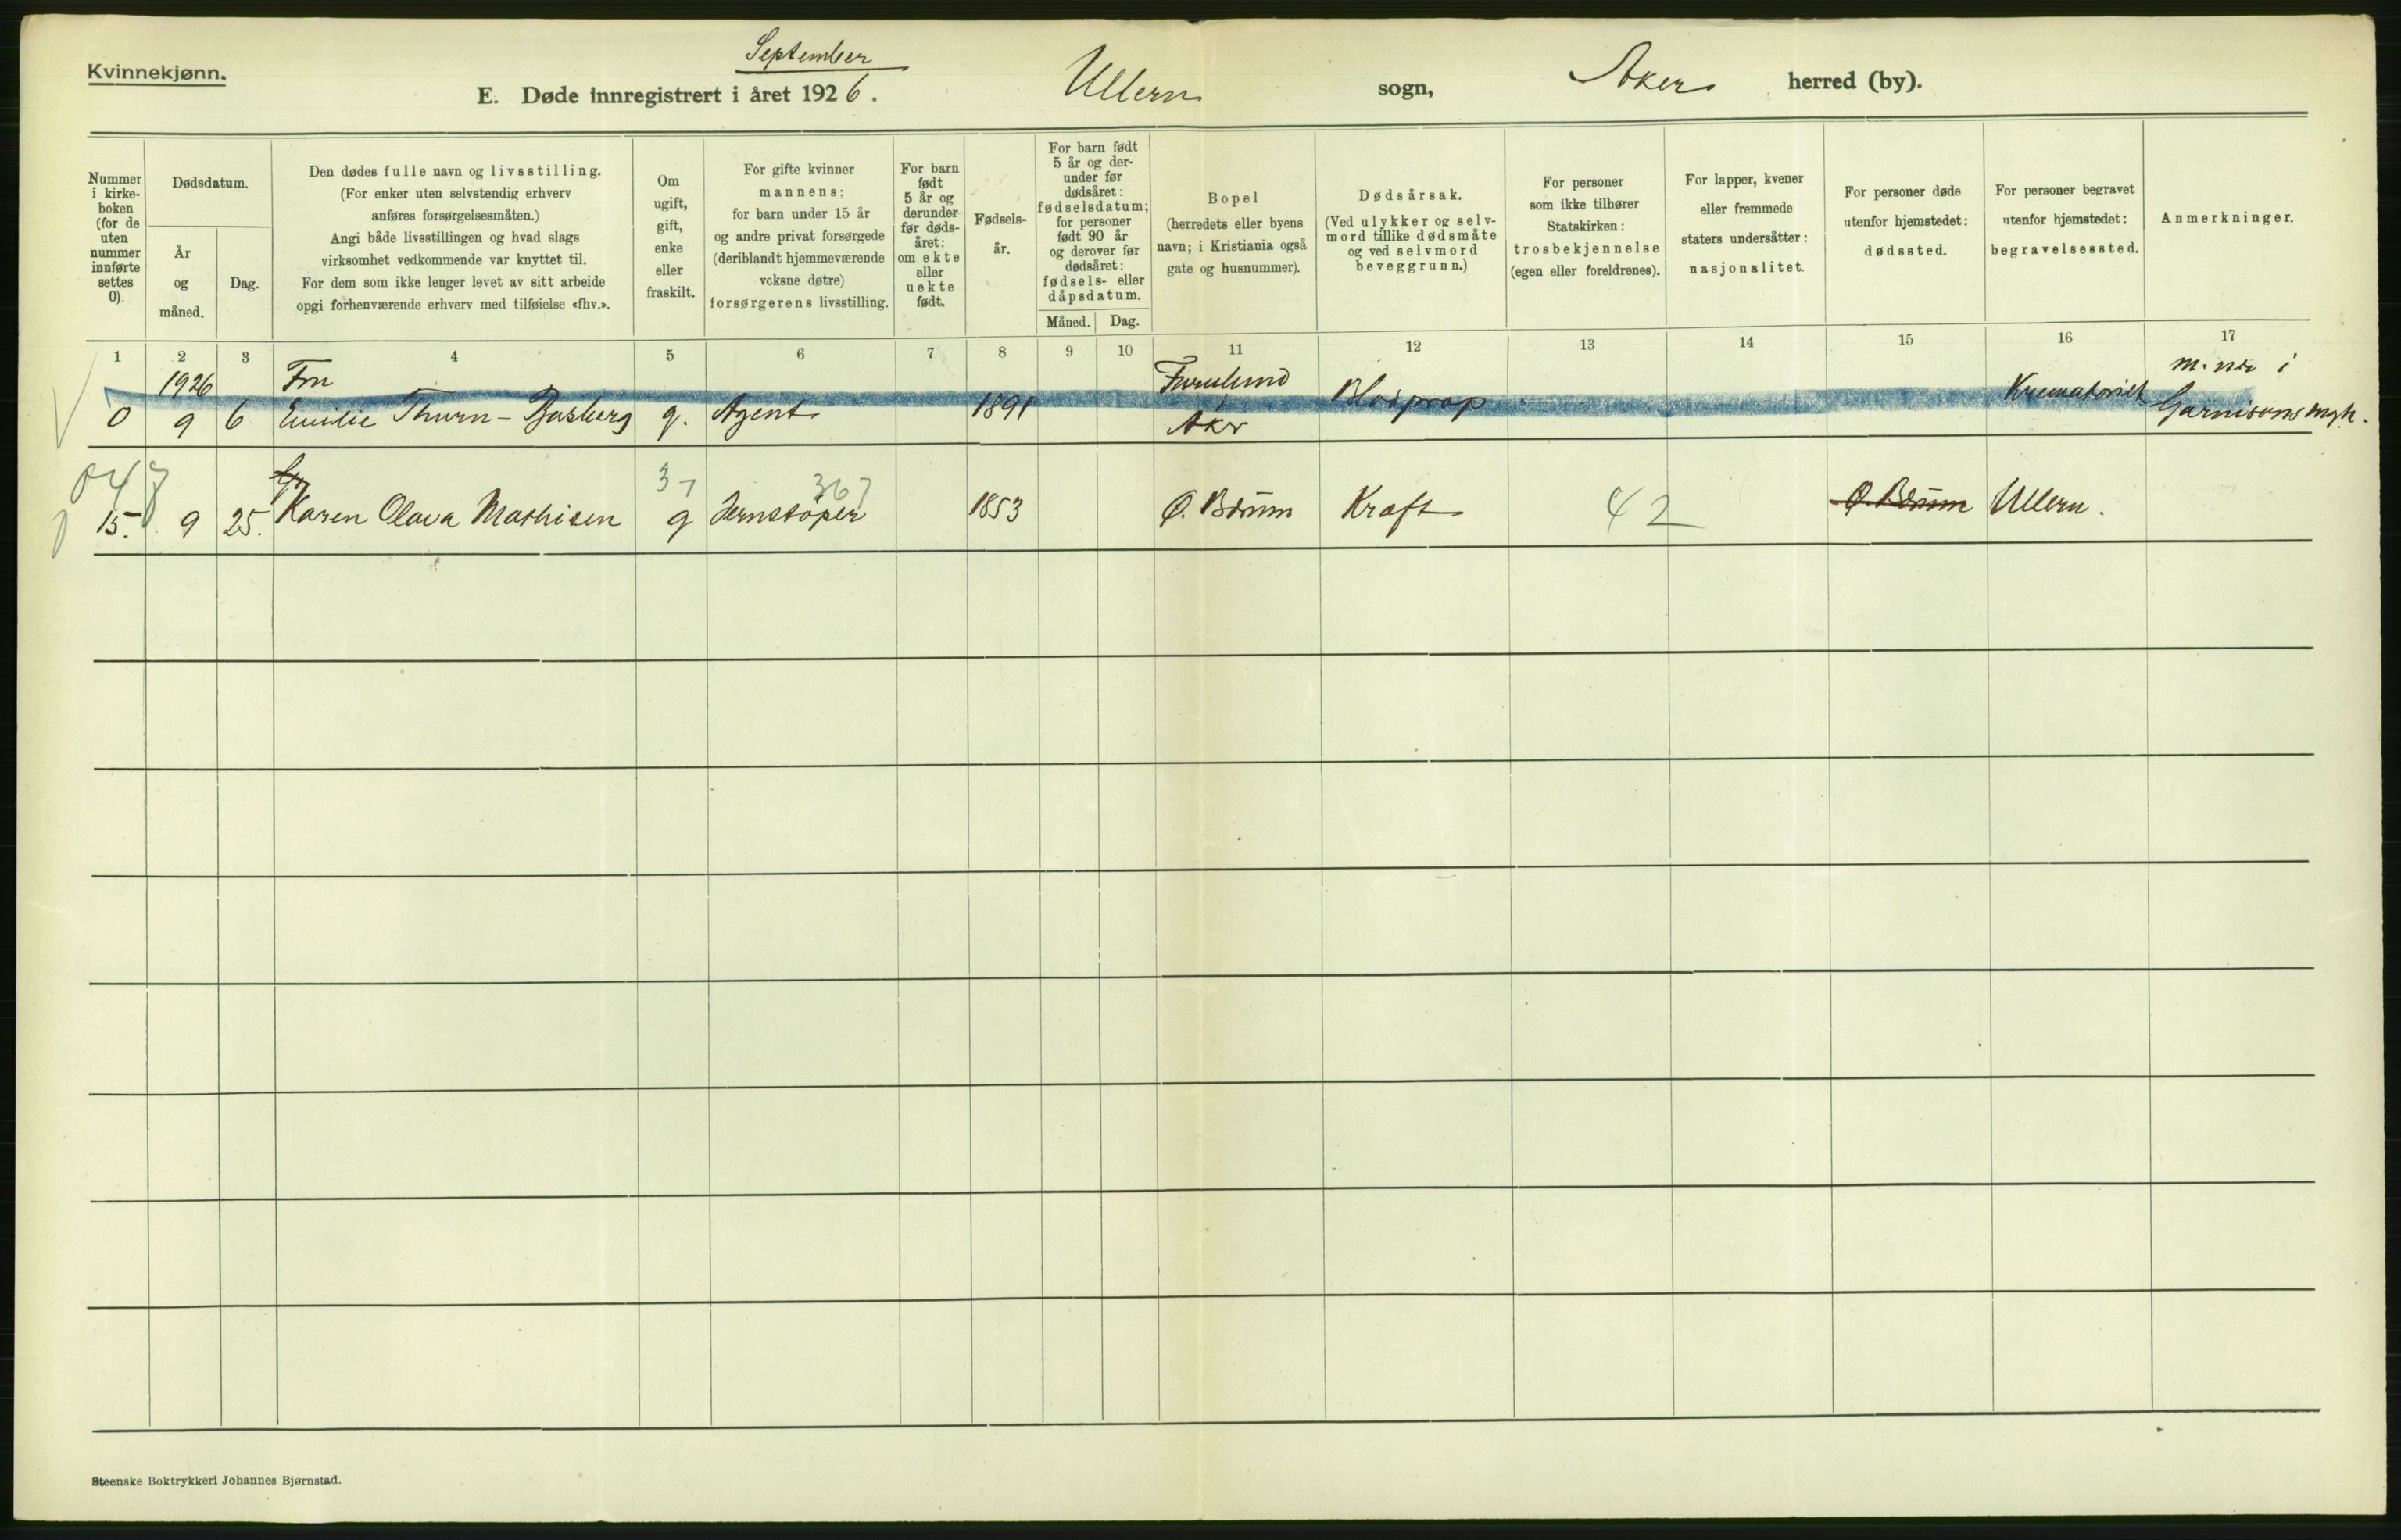 Kvinnekjønn.
September
E. Døde innregistrert i året 1926. Ullern sogn, Aker herred (by).
Nummer i kirke- boken (for de uten nummer innførte settes 0).
Dødsdatum.
År og måned.
Dag.
Den dødes fulle navn og livsstilling.
(For enker uten selvstendig erhverv
anføres forsørgelsesmåten.)
Angi både livsstillingen og hvad slags
virksomhet vedkommende var knyttet til.
For dem som ikke lenger levet av sitt arbeide
opgi forhenværende erhverv med tilføielse «fhv.».
Om ugift, gift, enke eller fraskilt.
For gifte kvinner
mannens;
for barn under 15 år
og andre privat forsørgede
(deriblandt hjemmeværende
voksne døtre)
forsørgerens livsstilling.
For barn født 5 år og derunder før døds- året: om ekte eller uekte født.
Fødsels- år.
For barn født
5 år og der-
under før
dødsåret:
fødselsdatum;
for personer
født 90 år
og derover før
dødsåret:
fødsels- eller
dåpsdatum.
Måned. Dag.
Bopel
(herredets eller byens
navn; i Kristiania også
gate og husnummer).
Dødsårsak.
(Ved ulykker og selv-
mord tillike dødsmåte
og ved selvmord
beveggrunn.)
For personer
som ikke tilhører
Statskirken:
trosbekjennelse
(egen eller foreldrenes).
For lapper, kvener
eller fremmede
staters undersåtter:
nasjonalitet.
For personer døde
utenfor hjemstedet:
dødssted.
For personer begravet
utenfor hjemstedet:
begravelsessted.
Anmerkninger.
1 2 3 4 5 6 7 8 9 10 11 12 13 14 15 16 17
1926 Fru m. nr i
0 9 6 Emilie Thurn- g. Agent 1891 Aker Blodprop Krematoriet Garnisons mgh.
37 367
15. 9 25. Karen Olava Mathisen g Jernstøper 1853 Ø. Bærum Kræft 42 Ø. Bærum Ullern.
Steenske Boktrykkeri Johannes Bjørnstad.